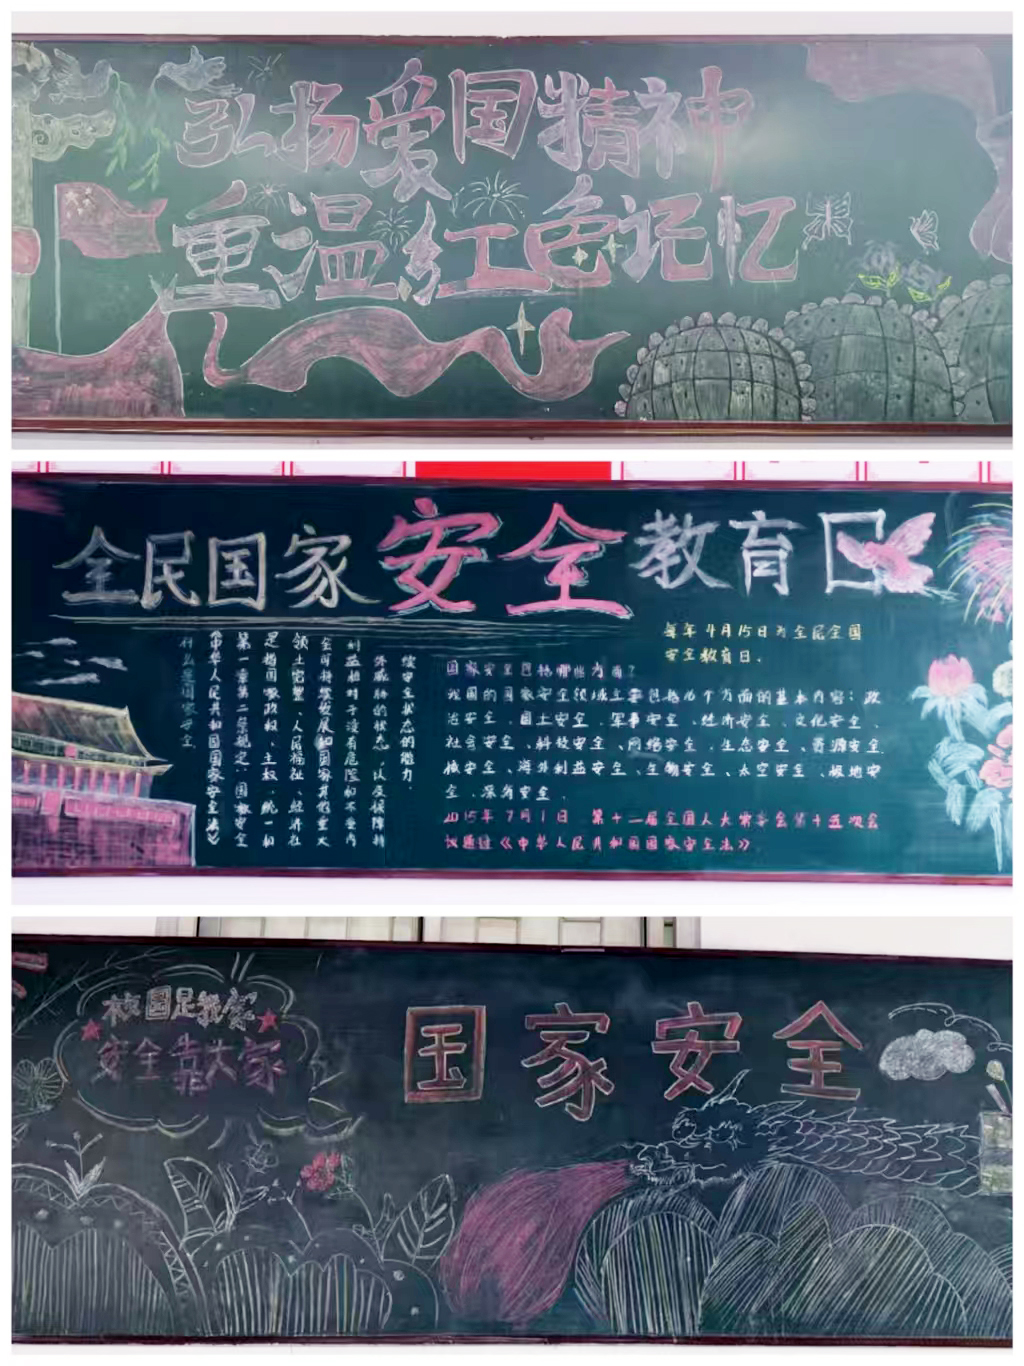 弘扬爱国精神
重温红色记忆
全民国家安全教育日
每年4月15日为全民全国
安全教育日.
什么是国家安全
《中华人民共和国国家安全法》
第一章第二条规定:国家安全
是指国家政权、主权、统一和
领土完整、人民福祉、经济社
会可持续发展和国家其他重大
利益相对于没有危险和不受内
外威胁的状态,以及保障持
续安全状态的能力.
国家安全包括哪些方面?
我国的国家安全领域主要包括16个方面的基本内容:政
治安全、国土安全、军事安全、经济安全、文化安全、
社会安全、科技安全、网络安全、生态安全、资源安全
核安全、海外利益安全、生物安全、太空安全、极地安
全、深海安全.
2015年7月1日 第十二届全国人大常委会第十五次会
议通过《中华人民共和国国家安全法》.
校园是我家
安全靠大家
国家安全